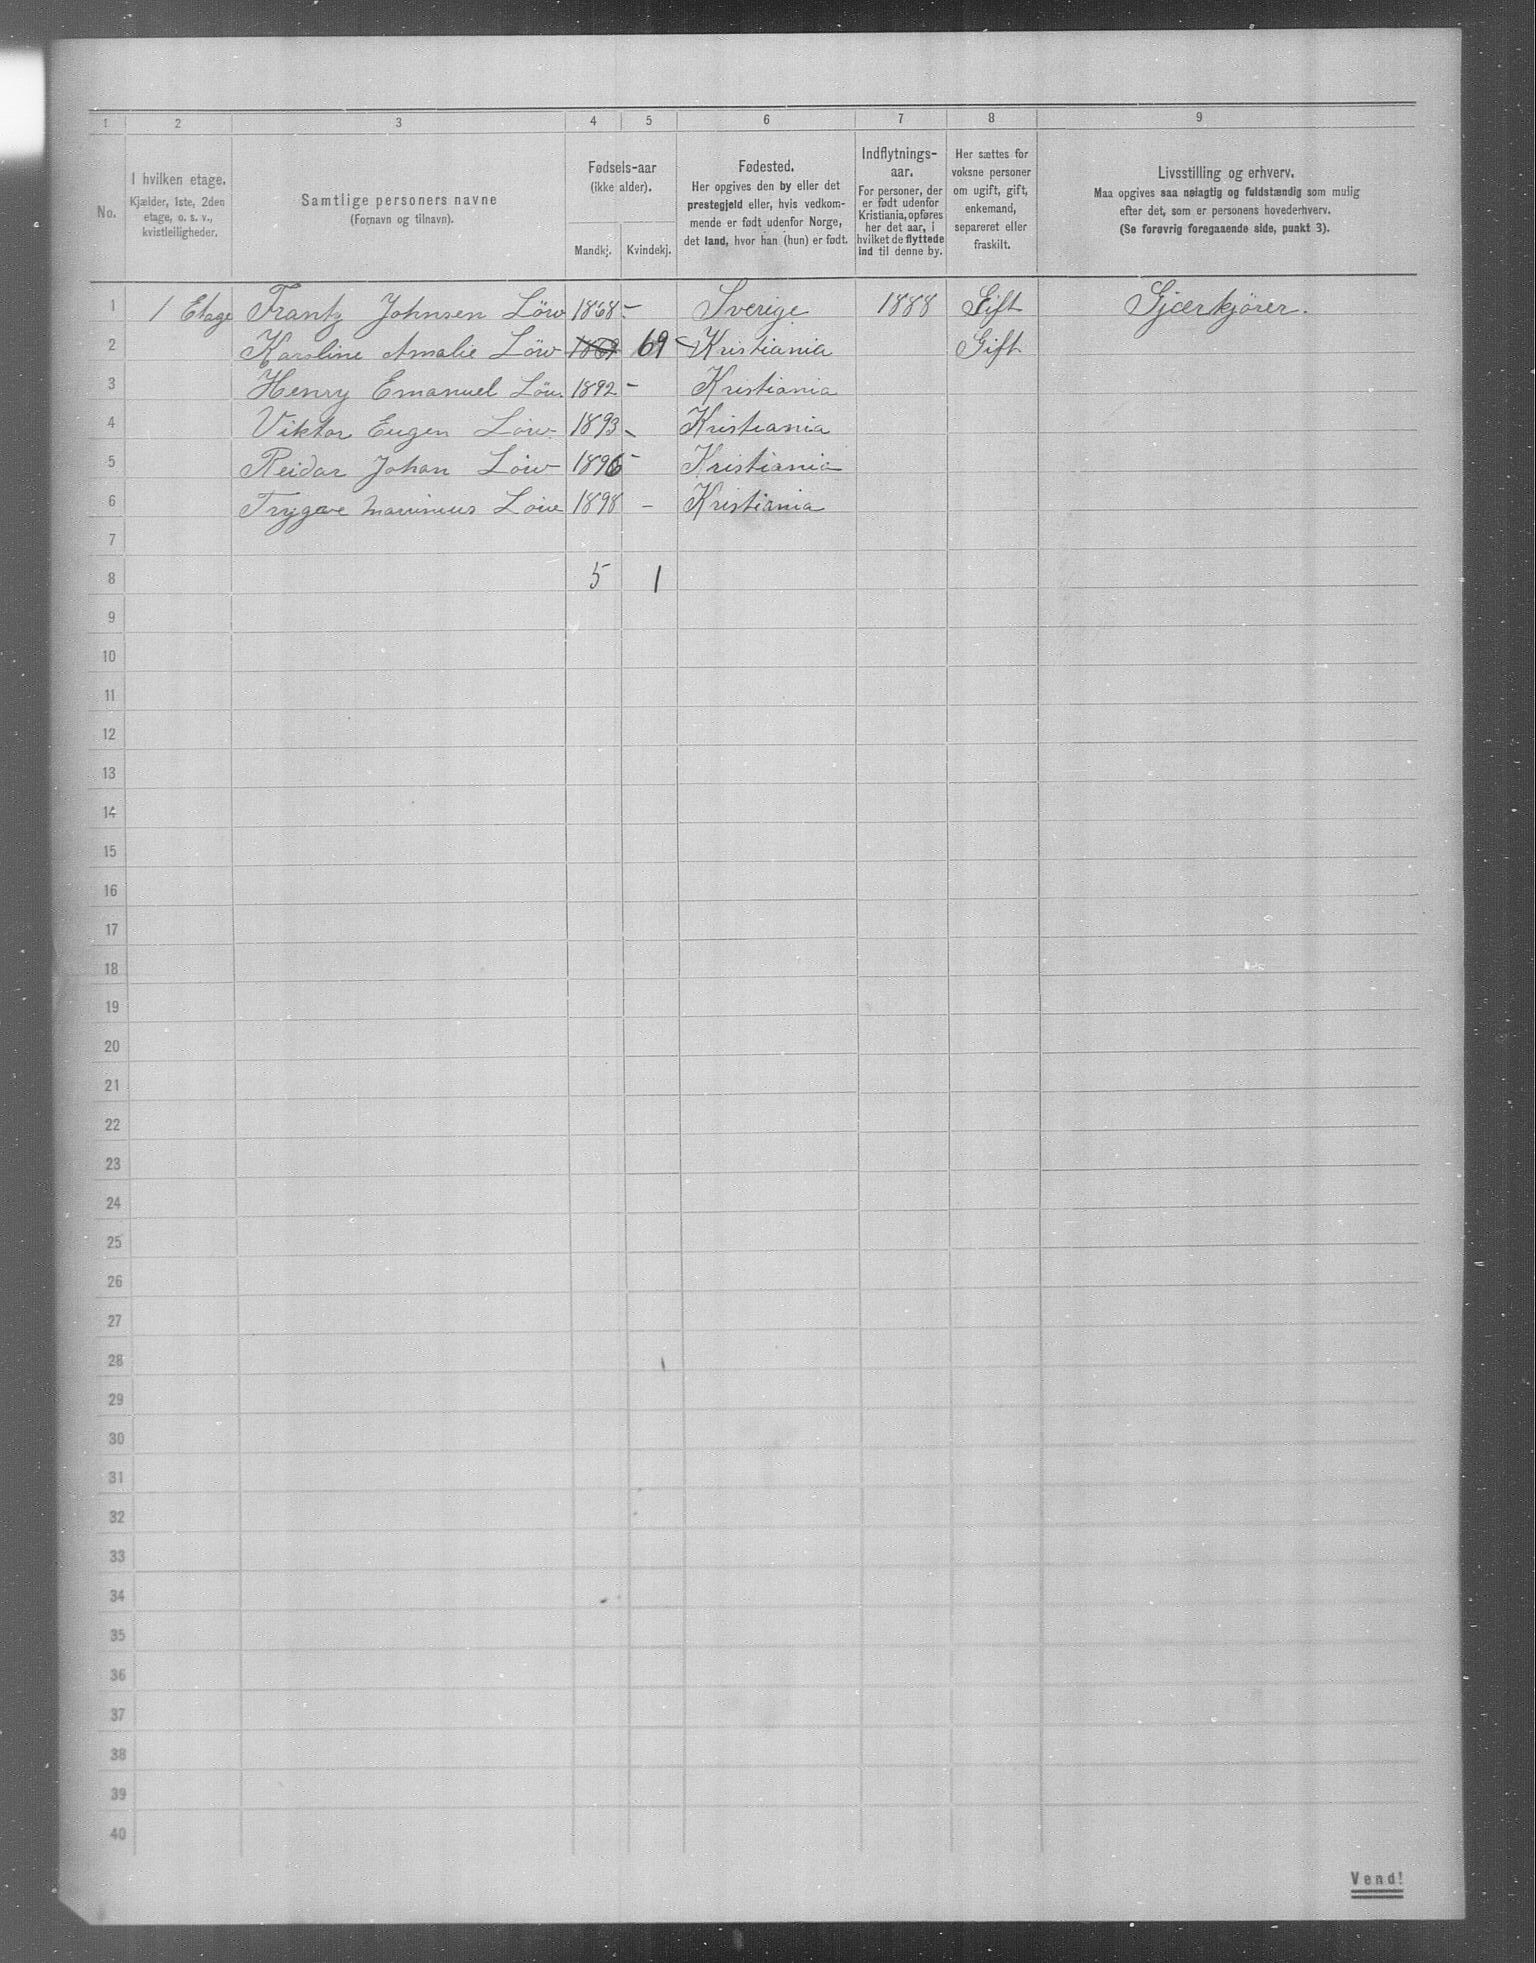 1 2 3 4 5 6 7 8 9
No.
I hvilken etage.
Kjælder, 1ste, 2den
etage, o. s. v.,
kvistleiligheder.
Samtlige personers navne
(Fornavn og tilnavn).
Fødsels-aar
(ikke alder).
Mandkj. Kvindekj.
Fødested.
Her opgives den by eller det
prestegjeld eller, hvis vedkom-
mende er født udenfor Norge,
det land, hvor han (hun) er født.
Indflytnings-
aar.
For personer, der
er født udenfor
Kristiania, opføres
her det aar, i
hvilket de flyttede
ind til denne by.
Her sættes for
voksne personer
om ugift, gift,
enkemand,
separeret eller
fraskilt.
Livsstilling og erhverv.
Maa opgives saa nøiagtig og fuldstændig som mulig
efter det, som er personens hovederhverv.
(Se forøvrig foregaaende side, punkt 3).
1 1 Etage Frantz Johnsen Löw 1868 - Sverige 1888 Gift Gjærkjører.
2 Karoline Amalie Löw 1869 69 - Kristiania Gift
3 Henry Emanuel Löw 1892 - Kristiania
4 Viktor Eugen Löw 1893 - Kristiania
5 Reidar Johan Löw 1896 - Kristiania
6 Trygve Marinius Löw 1898 - Kristiania
7
8 5 1
9
10
11
12
13
14
15
16
17
18
19
20
21
22
23
24
25
26
27
28
29
30
31
32
33
34
35
36
37
38
39
40
Vend!